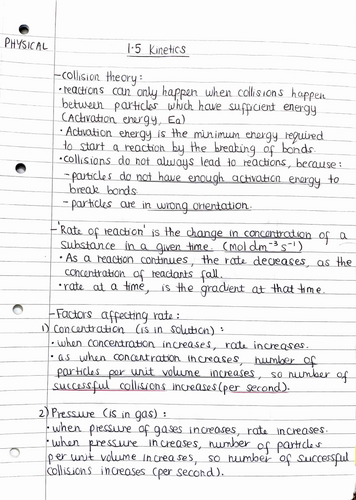 PHYSICAL
1.5 Kinetics
- collision theory:
• reactions can only happen when collisions happen
between particles which have sufficient energy
(Activation energy, Ea)
• Activation energy is the minimum energy required
to start a reaction by the breaking of bonds.
• collisions do not always lead to reactions, because:
- particles do not have enough activation energy to
break bonds
- particles are in wrong orientation.
- 'Rate of reaction' is the change in concentration of a
substance in a given time. (mol dm⁻³ s⁻¹)
• As a reaction continues, the rate decreases, as the
concentration of reactants fall.
• rate at a time, is the gradient at that time.
- Factors affecting rate:
1) Concentration (is in solution):
• when concentration increases, rate increases.
• as when concentration increases, number of
particles per unit volume increases, so number of
successful collisions increases (per second).
2) Pressure (is in gas):
• when pressure of gases increases, rate increases.
• when pressure increases, number of particles
per unit volume increases, so number of successful
collisions increases (per second).